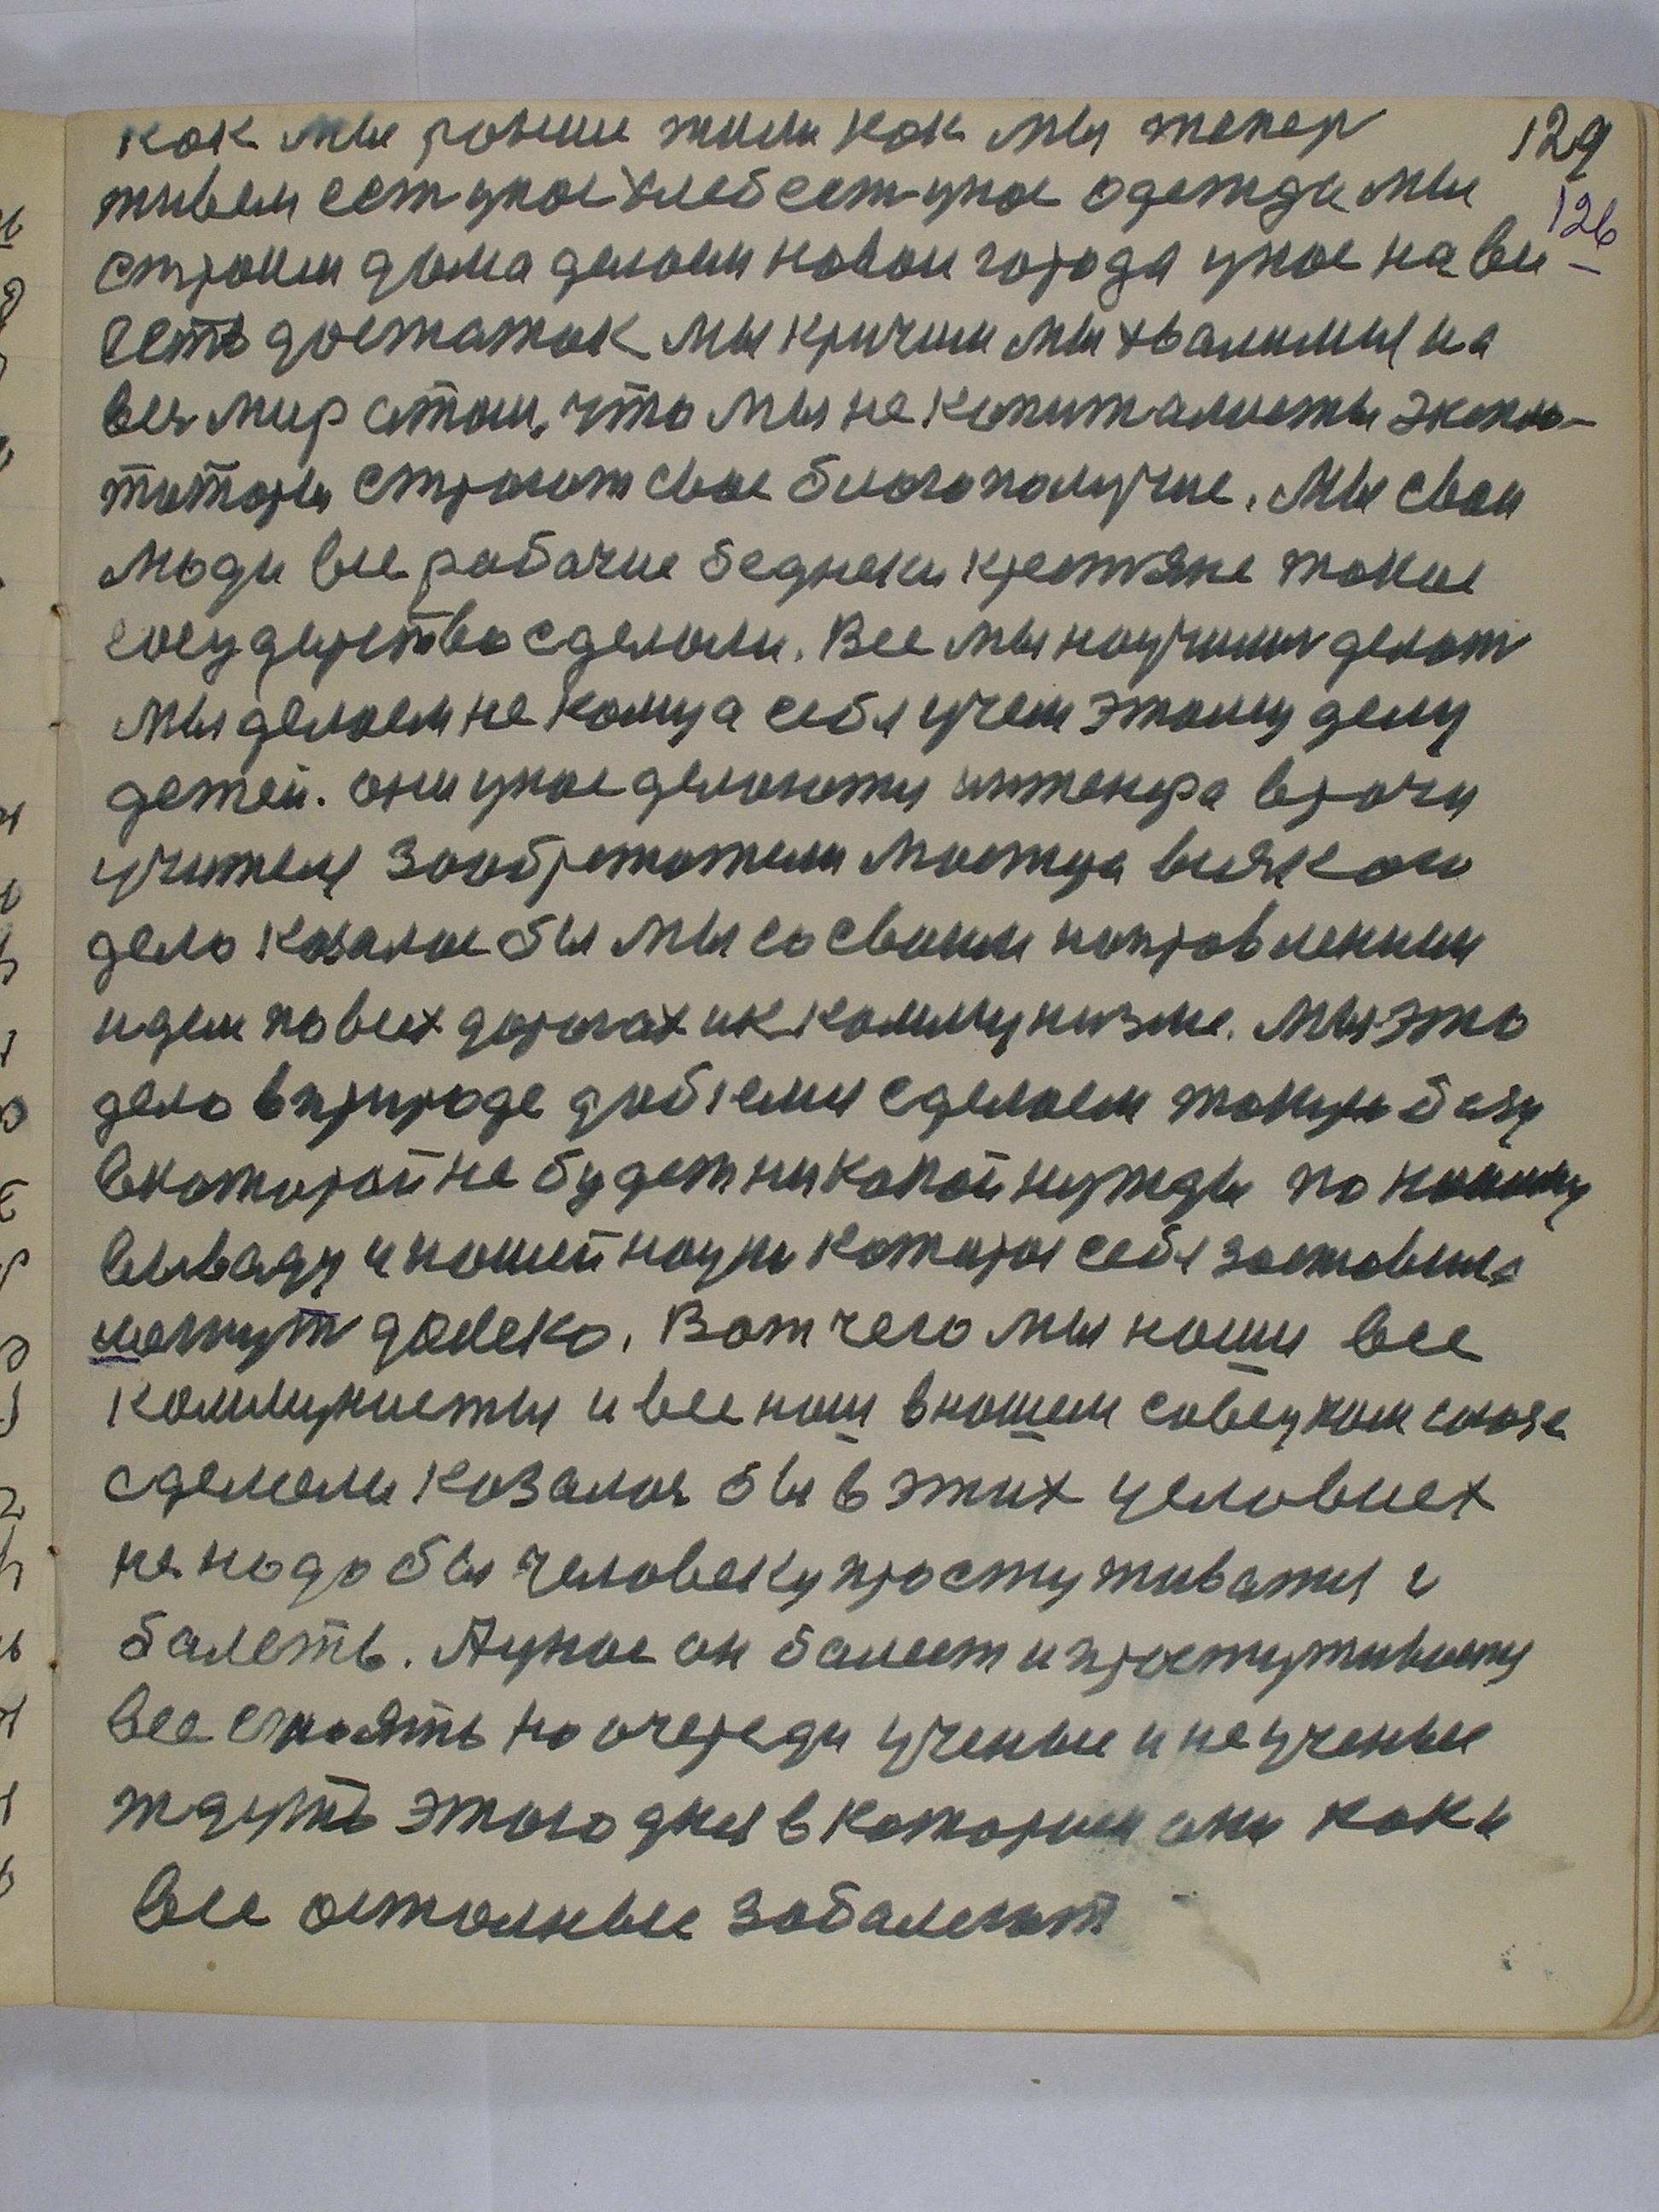 как мы раньше жили как мы тепер 129
живем ест унас хлеб сест унас одежда мы 126
строим дома делаем новои города унас на вси
Есть достаток мы кричим мы хвалимыся на
вес мир стои, что мы не капиталисты экспло-
тоторы строют свое благополучие. Мы свои
люди все рабочие бедняки крестяне такое
государство сделали. Все мы научились делат
мы делаем не кому а себя учем этому делу
детей. они унас делаются инженера врочи
учителя зообретатели мостера всякого
дело казалос бы мы со своим направлением
идем по всех дорогах ик коммунизме. Мы это
дело в природе добъемся сделаем такую базу
вкоторой не будет никакой нужды по нашиму
выводу и нашей науки которая себя заставила
шагнут далеко. Вот чего мы наши все
коммунисты и все наш в нашем совецком союзе
сделали казалос бы в этих условиех
не надо бы человеку простуживатся и
балеть. Аунас он балеет и простуживается
Все стоять на очереди ученые и неученые
ждуть этого дня в котором они как и
все остолные забалеют